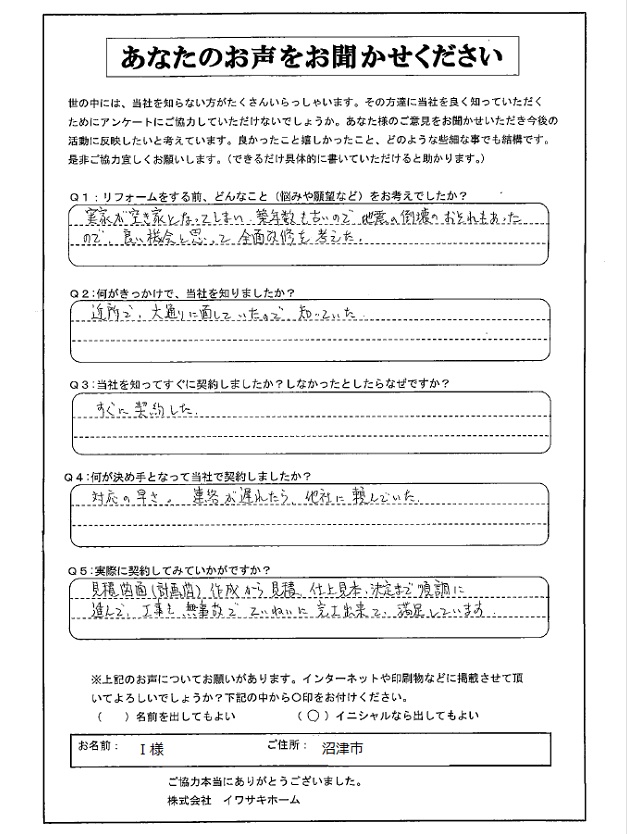 あなたのお声をお聞かせください
世の中には、当社を知らない方がたくさんいらっしゃいます。その方達に当社を良く知っていただく
ためにアンケートにご協力していただけないでしょうか。あなた様のご意見をお聞かせいただき今後の
活動に反映したいと考えています。良かったこと嬉しかったこと、どのような些細な事でも結構です。
是非ご協力宜しくお願いします。(できるだけ具体的に書いていただけると助かります。)
Q1:リフォームをする前、どんなこと(悩みや願望など)をお考えでしたか?
実家が空き家となってしまい、築年数も古いので地震の倒壊のおそれもあった
ので、良い機会と思って全面改修を考えた。
Q2:何がきっかけで、当社を知りましたか?
近所で、大通りに面していたので知っていた。
Q3:当社を知ってすぐに契約しましたか?しなかったとしたらなぜですか?
すぐに契約した。
Q4:何が決め手となって当社で契約しましたか?
対応の早さ。連絡が遅れたら、他社に頼んでいた。
Q5:実際に契約してみていかがですか?
見積図面(計画図)作成から見積、仕上見本、決定まで順調に
進んで、工事も無事故でていねいに完工出来て、満足しています。
※上記のお声についてお願いがあります。インターネットや印刷物などに掲載させて頂
いてよろしいでしょうか?下記の中から○印をお付けください。
( )名前を出してもよい (○)イニシャルなら出してもよい
お名前: I様 ご住所: 沼津市
ご協力本当にありがとうございました。
株式会社 イワサキホーム